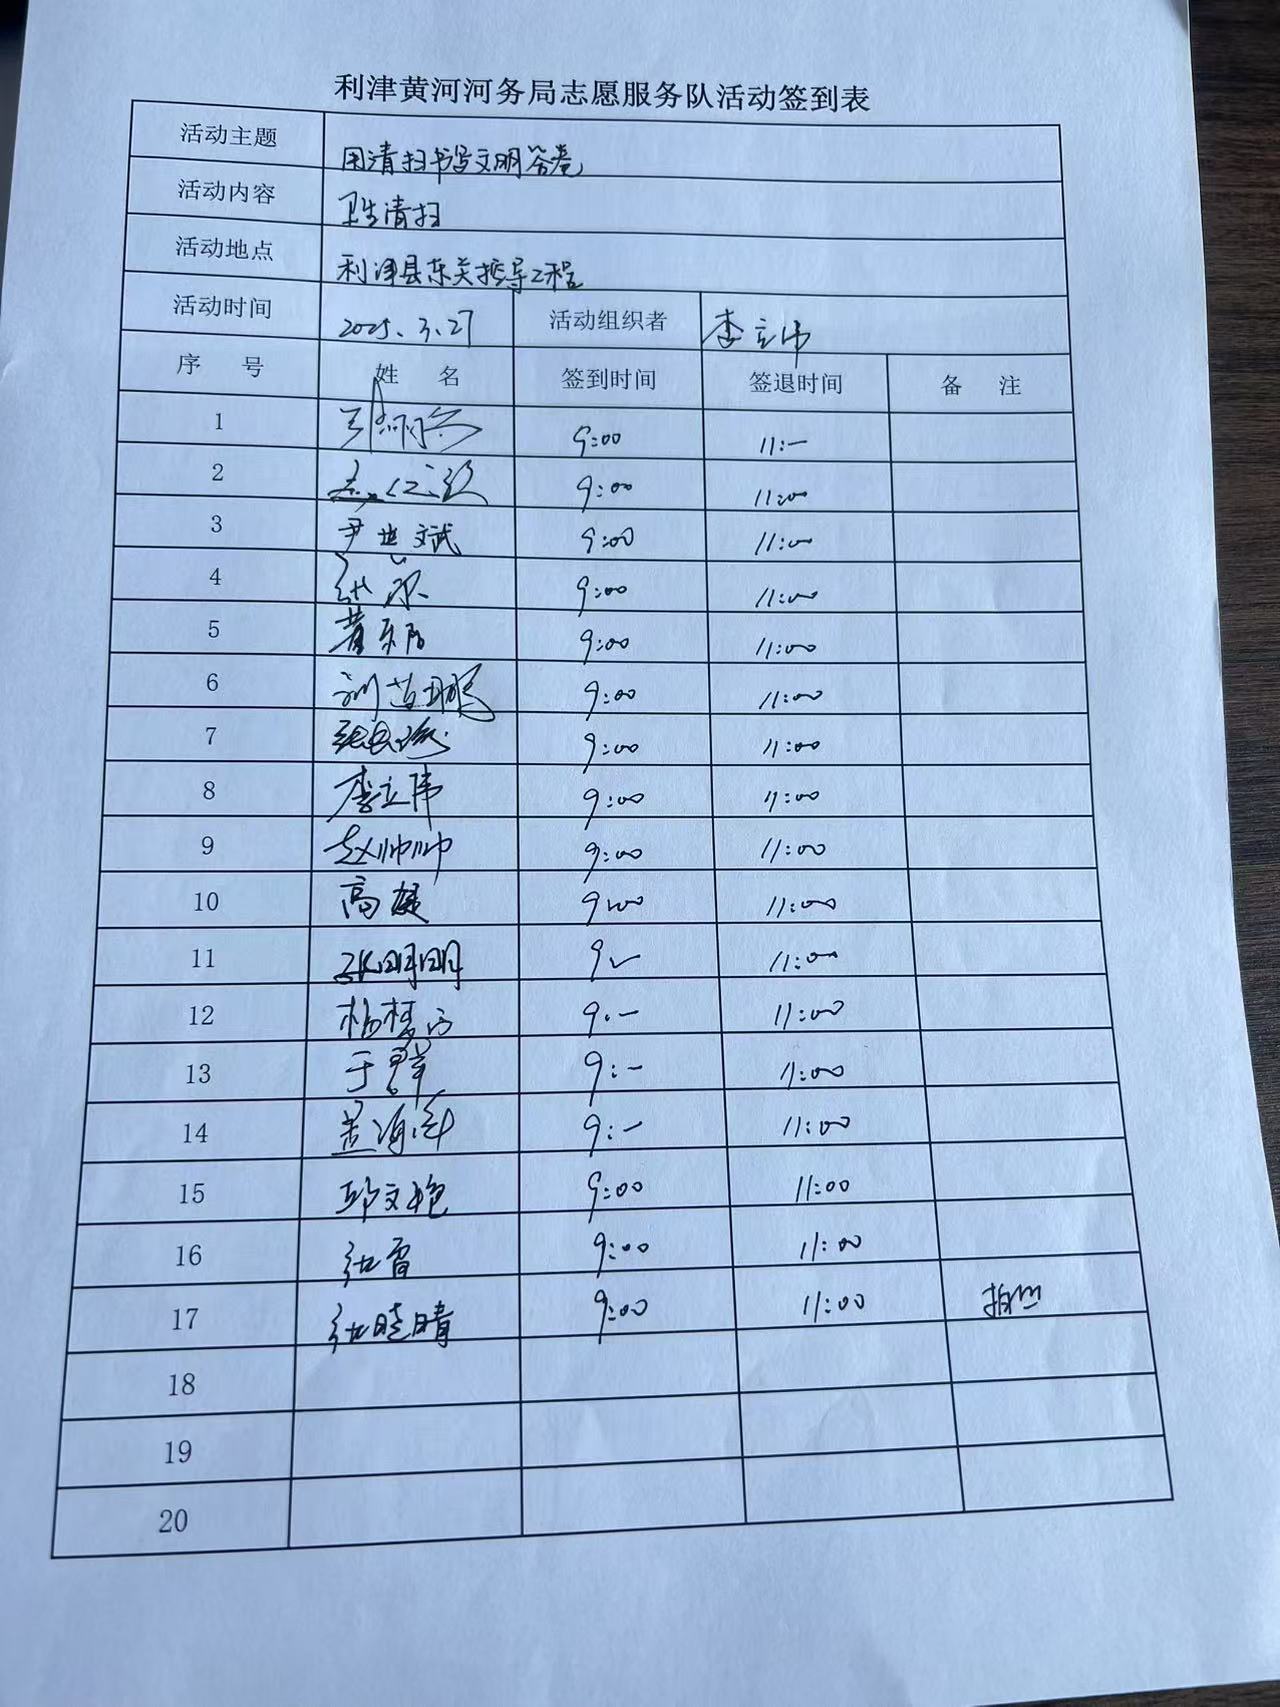 利津黄河河务局志愿服务队活动签到表
活动主题 用清扫书写文明答卷
活动内容 卫生清扫
活动地点 利津县东关控导工程
活动时间 2025.3.27 活动组织者 李立伟
序 号 姓 名 签到时间 签退时间 备 注
1 9:00 11:-
2 9:00 11:00
3 尹世斌 9:00 11:00
4 9:00 11:00
5 9:00 11:00
6 刘 9:00 11:00
7 9:00 11:00
8 李立伟 9:00 11:00
9 赵帅帅 9:00 11:00
10 高 9:00 11:00
11 张明明 9 11:00
12 杨 9:- 11:00
13 于群 9:- 11:00
14 9:- 11:00
15 邱文艳 9:00 11:00
16 张雷 9:00 11:00
17 张晓晴 9:00 11:00
18
19
20